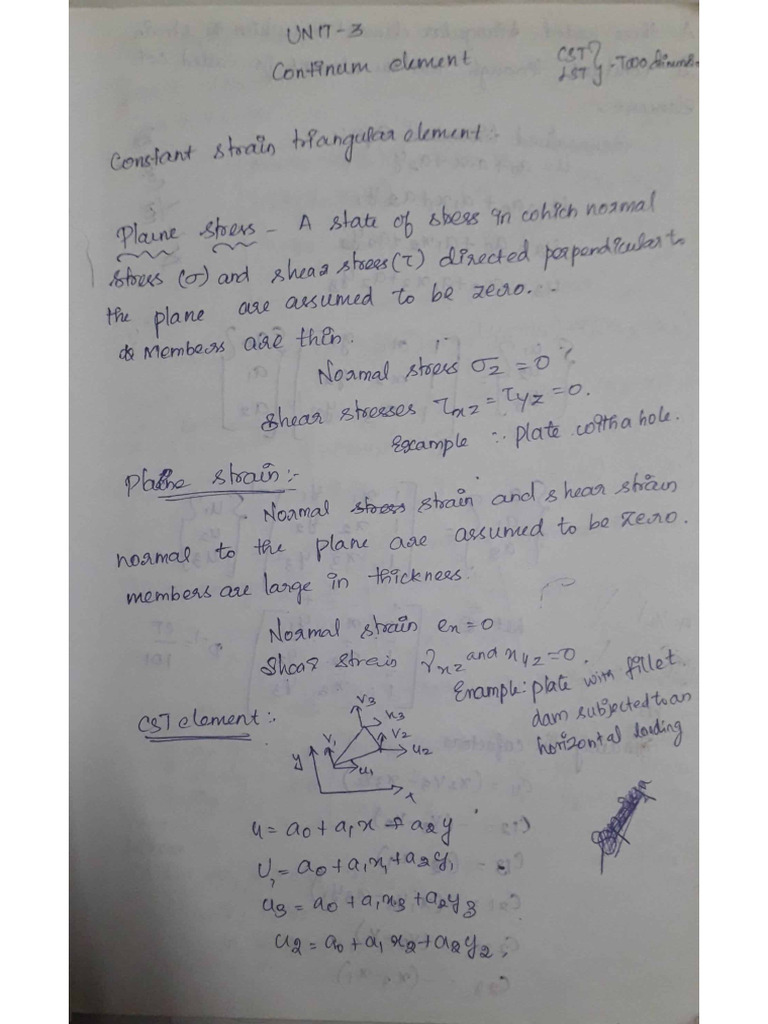 UNIT-3
Continum element
CST } - Two dimen
LST
Constant strain triangular element :-
Plane stress - A state of stress in which normal
stress (σ) and shear stress (τ) directed perpendicular to
the plane are assumed to be zero.
Members are thin.
Normal stress σz = 0
Shear stresses τxz = τyz = 0.
Example :- plate with a hole.
Plane strain :-
Normal stress strain and shear strain
normal to the plane are assumed to be zero.
members are large in thickness.
Normal strain ex = 0
Shear strain γxz and γyz = 0.
Example: plate with fillet.
dam subjected to an
horizontal loading
CST element :-
v3
u3
v1
v2
y
u2
u1
x
u = a0 + a1x + a2y
U1 = a0 + a1x1 + a2y1
u3 = a0 + a1x3 + a2y3
u2 = a0 + a1x2 + a2y2.